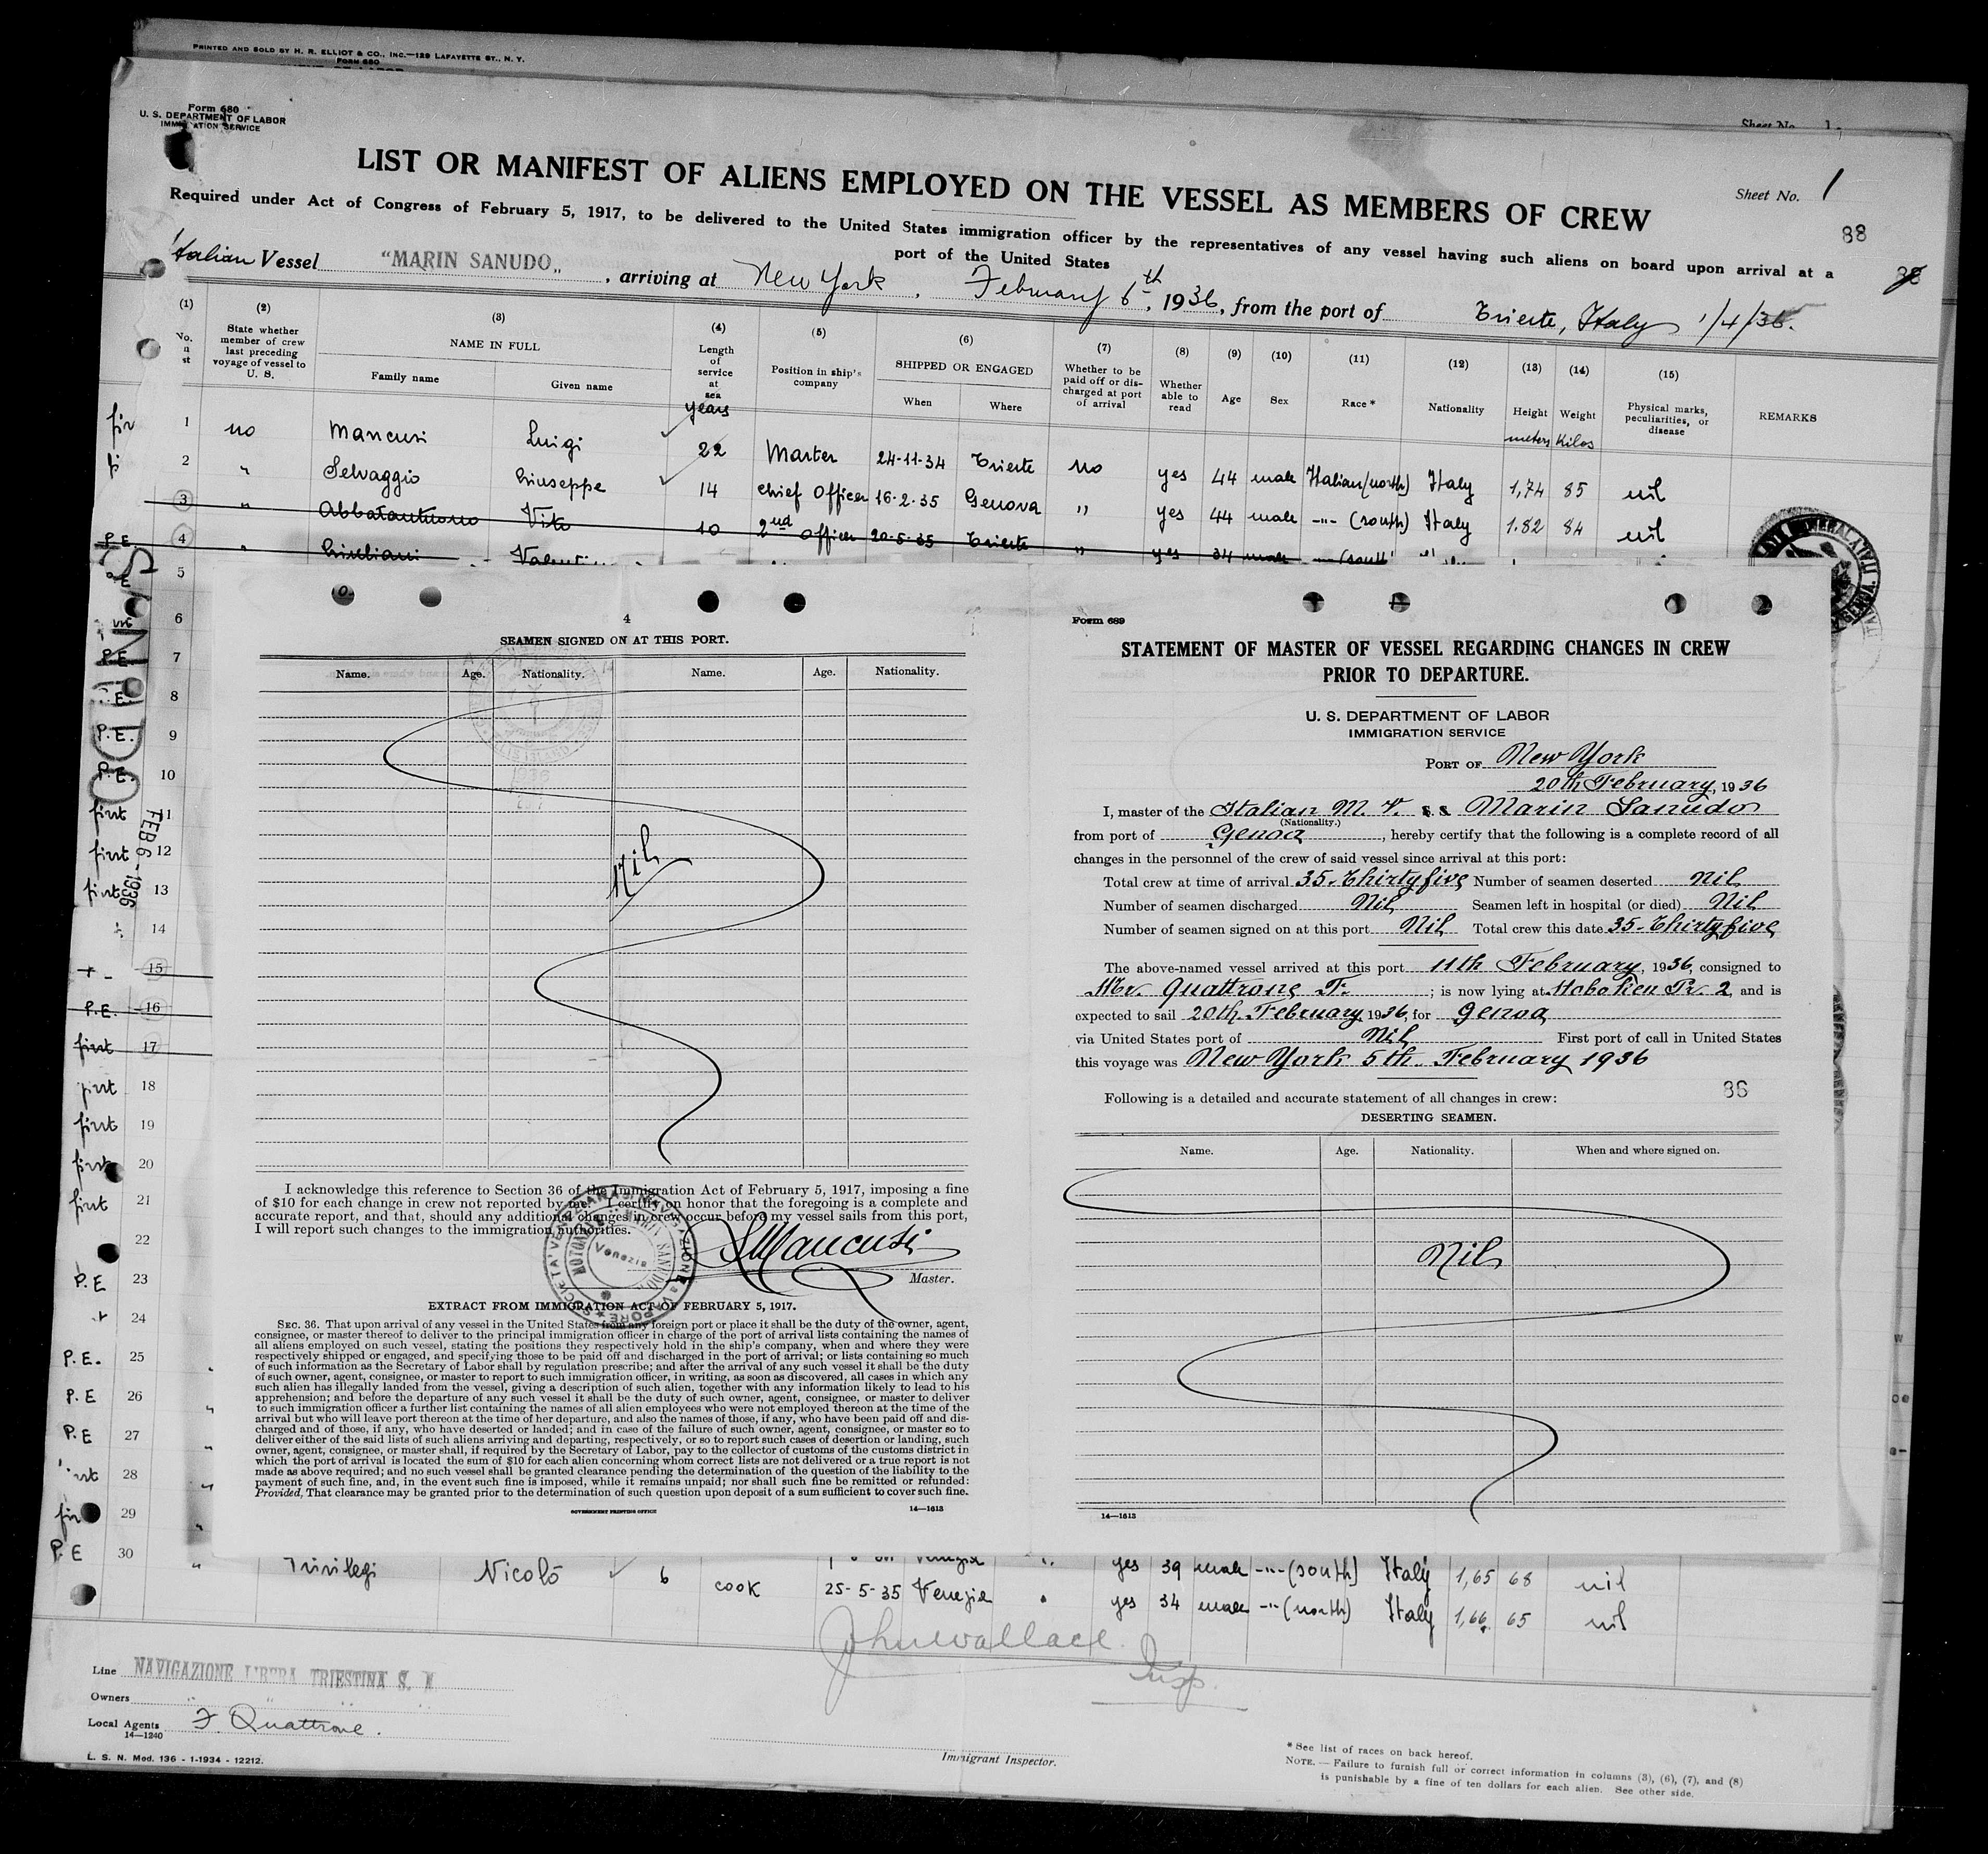 PRINTED AND SOLD BY H. R. ELLIOT & CO., INC.—129 LAFAYETTE ST., N. Y.
FORM 680
Sheet No. 1
Form 680
U. S. DEPARTMENT OF LABOR
IMMIGRATION SERVICE
LIST OR MANIFEST OF ALIENS EMPLOYED ON THE VESSEL AS MEMBERS OF CREW
Sheet No. 1
88
Required under Act of Congress of February 5, 1917, to be delivered to the United States immigration officer by the representatives of any vessel having such aliens on board upon arrival at a
port of the United States
Italian Vessel "MARIN SANUDO", arriving at New York, February 6th, 1936, from the port of Trieste, Italy 1/4/36.
(1) (2) (3) (4) (5) (6) (7) (8) (9) (10) (11) (12) (13) (14) (15)
No.
State whether member of crew last preceding voyage of vessel to U. S.
NAME IN FULL
Family name Given name
Length of service at sea
years
Position in ship's company
SHIPPED OR ENGAGED
When Where
Whether to be paid off or discharged at port of arrival
Whether able to read
Age Sex Race * Nationality Height Weight
meters Kilos
Physical marks, peculiarities, or disease
REMARKS
1 no Mancusi Luigi 22 Master 24-11-34 Trieste no yes 44 male Italian (north) Italy 1,74 85 nil
2 " Selvaggio Giuseppe 14 Chief Officer 16-2-35 Genova " yes 44 male -"- (south) Italy 1.82 84 nil
3 " Abbatantuono Vito 10 2nd Officer 20-5-35 Trieste " yes 34 male -"- (south)
P.E 4 "
5
6
P.E 7
P.E. 8
P.E. 9
P.E. 10
first 11
first 12
first 13
14
15
P.E. 16
first 17
first 18
first 19
first 20
first 21
22
P.E 23
24
P.E. 25
P.E 26
P.E 27
first 28
29
P.E 30
FEB 6-1936
4
SEAMEN SIGNED ON AT THIS PORT.
Name. Age. Nationality. Name. Age. Nationality.
Nil
I acknowledge this reference to Section 36 of the Immigration Act of February 5, 1917, imposing a fine
of $10 for each change in crew not reported by me. I certify on honor that the foregoing is a complete and
accurate report, and that, should any additional changes in crew occur before my vessel sails from this port,
I will report such changes to the immigration authorities.
L Mancusi
Master.
SOCIETA' VENEZIANA DI NAVIGAZIONE A VAPORE
MOTONAVE MARIN SANUDO
Venezia
EXTRACT FROM IMMIGRATION ACT OF FEBRUARY 5, 1917.
SEC. 36. That upon arrival of any vessel in the United States from any foreign port or place it shall be the duty of the owner, agent,
consignee, or master thereof to deliver to the principal immigration officer in charge of the port of arrival lists containing the names of
all aliens employed on such vessel, stating the positions they respectively hold in the ship's company, when and where they were
respectively shipped or engaged, and specifying those to be paid off and discharged in the port of arrival; or lists containing so much
of such information as the Secretary of Labor shall by regulation prescribe; and after the arrival of any such vessel it shall be the duty
of such owner, agent, consignee, or master to report to such immigration officer, in writing, as soon as discovered, all cases in which any
such alien has illegally landed from the vessel, giving a description of such alien, together with any information likely to lead to his
apprehension; and before the departure of any such vessel it shall be the duty of such owner, agent, consignee, or master to deliver
to such immigration officer a further list containing the names of all alien employees who were not employed thereon at the time of the
arrival but who will leave port thereon at the time of her departure, and also the names of those, if any, who have been paid off and dis-
charged and of those, if any, who have deserted or landed; and in case of the failure of such owner, agent, consignee, or master so to
deliver either of the said lists of such aliens arriving and departing, respectively, or so to report such cases of desertion or landing, such
owner, agent, consignee, or master shall, if required by the Secretary of Labor, pay to the collector of customs of the customs district in
which the port of arrival is located the sum of $10 for each alien concerning whom correct lists are not delivered or a true report is not
made as above required; and no such vessel shall be granted clearance pending the determination of the question of the liability to the
payment of such fine, and, in the event such fine is imposed, while it remains unpaid; nor shall such fine be remitted or refunded:
Provided, That clearance may be granted prior to the determination of such question upon deposit of a sum sufficient to cover such fine.
GOVERNMENT PRINTING OFFICE 14—1613
Form 689
STATEMENT OF MASTER OF VESSEL REGARDING CHANGES IN CREW
PRIOR TO DEPARTURE.
U. S. DEPARTMENT OF LABOR
IMMIGRATION SERVICE
PORT OF New York
20th February, 1936
I, master of the Italian M. V. S. S. Marin Sanudo
(Nationality.)
from port of Genoa, hereby certify that the following is a complete record of all
changes in the personnel of the crew of said vessel since arrival at this port:
Total crew at time of arrival 35-Thirtyfive Number of seamen deserted nil
Number of seamen discharged Nil Seamen left in hospital (or died) Nil
Number of seamen signed on at this port Nil Total crew this date 35-Thirtyfive
The above-named vessel arrived at this port 11th February, 1936, consigned to
Mr. Quattrone F.; is now lying at Hoboken Pr. 2, and is
expected to sail 20th February 1936, for Genoa
via United States port of Nil First port of call in United States
this voyage was New York 5th February 1936
86
Following is a detailed and accurate statement of all changes in crew:
DESERTING SEAMEN.
Name. Age. Nationality. When and where signed on.
Nil
14—1613
yes 39 male -"- (south) Italy 1,65 68 nil
" Privilegi Nicolò 6 cook 25-5-35 Venezia " yes 34 male -"- (north) Italy 1,66 65 nil
John Wallace
Insp.
Line NAVIGAZIONE LIBERA TRIESTINA S. A
Owners " " "
Local Agents F. Quattrone.
14—1240
L. S. N. Mod. 136 - 1-1934 - 12212.
Immigrant Inspector.
* See list of races on back hereof.
NOTE. — Failure to furnish full or correct information in columns (3), (6), (7), and (8)
is punishable by a fine of ten dollars for each alien. See other side.